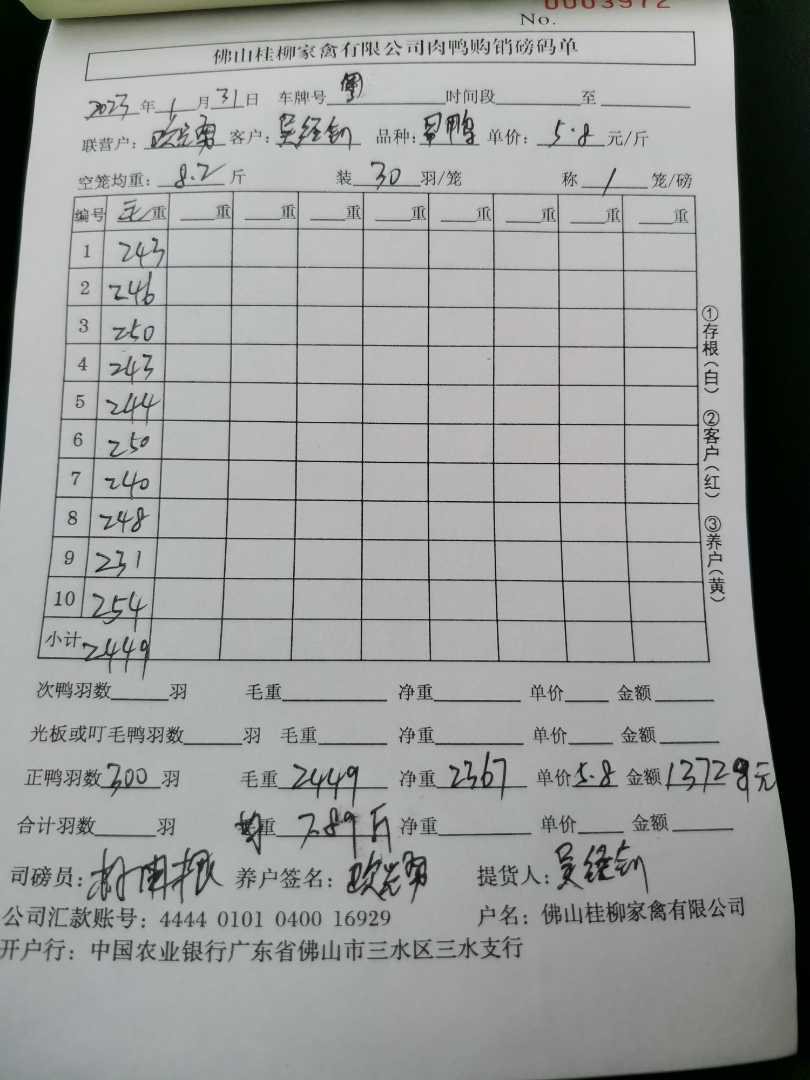 No. 0003972
佛山桂柳家禽有限公司肉鸭购销磅码单
2023年1月31日 车牌号 粤 时间段 至
联营户: 客户: 吴经钊 品种: 鸭 单价: 5.8 元/斤
空笼均重: 8.2 斤 装 30 羽/笼 称 1 笼/磅
编号 毛重 重 重 重 重 重 重 重 重
1 243
2 246
3 250
4 243
5 244
6 250
7 240
8 248
9 231
10 254
小计 2449
①存根(白) ②客户(红) ③养户(黄)
次鸭羽数 羽 毛重 净重 单价 金额
光板或叮毛鸭羽数 羽 毛重 净重 单价 金额
正鸭羽数 300 羽 毛重 2449 净重 2367 单价 5.8 金额 13729元
合计羽数 羽 均重 7.89斤 净重 单价 金额
司磅员: 养户签名: 提货人: 吴经钊
公司汇款账号: 4444 0101 0400 16929 户名: 佛山桂柳家禽有限公司
开户行: 中国农业银行广东省佛山市三水区三水支行